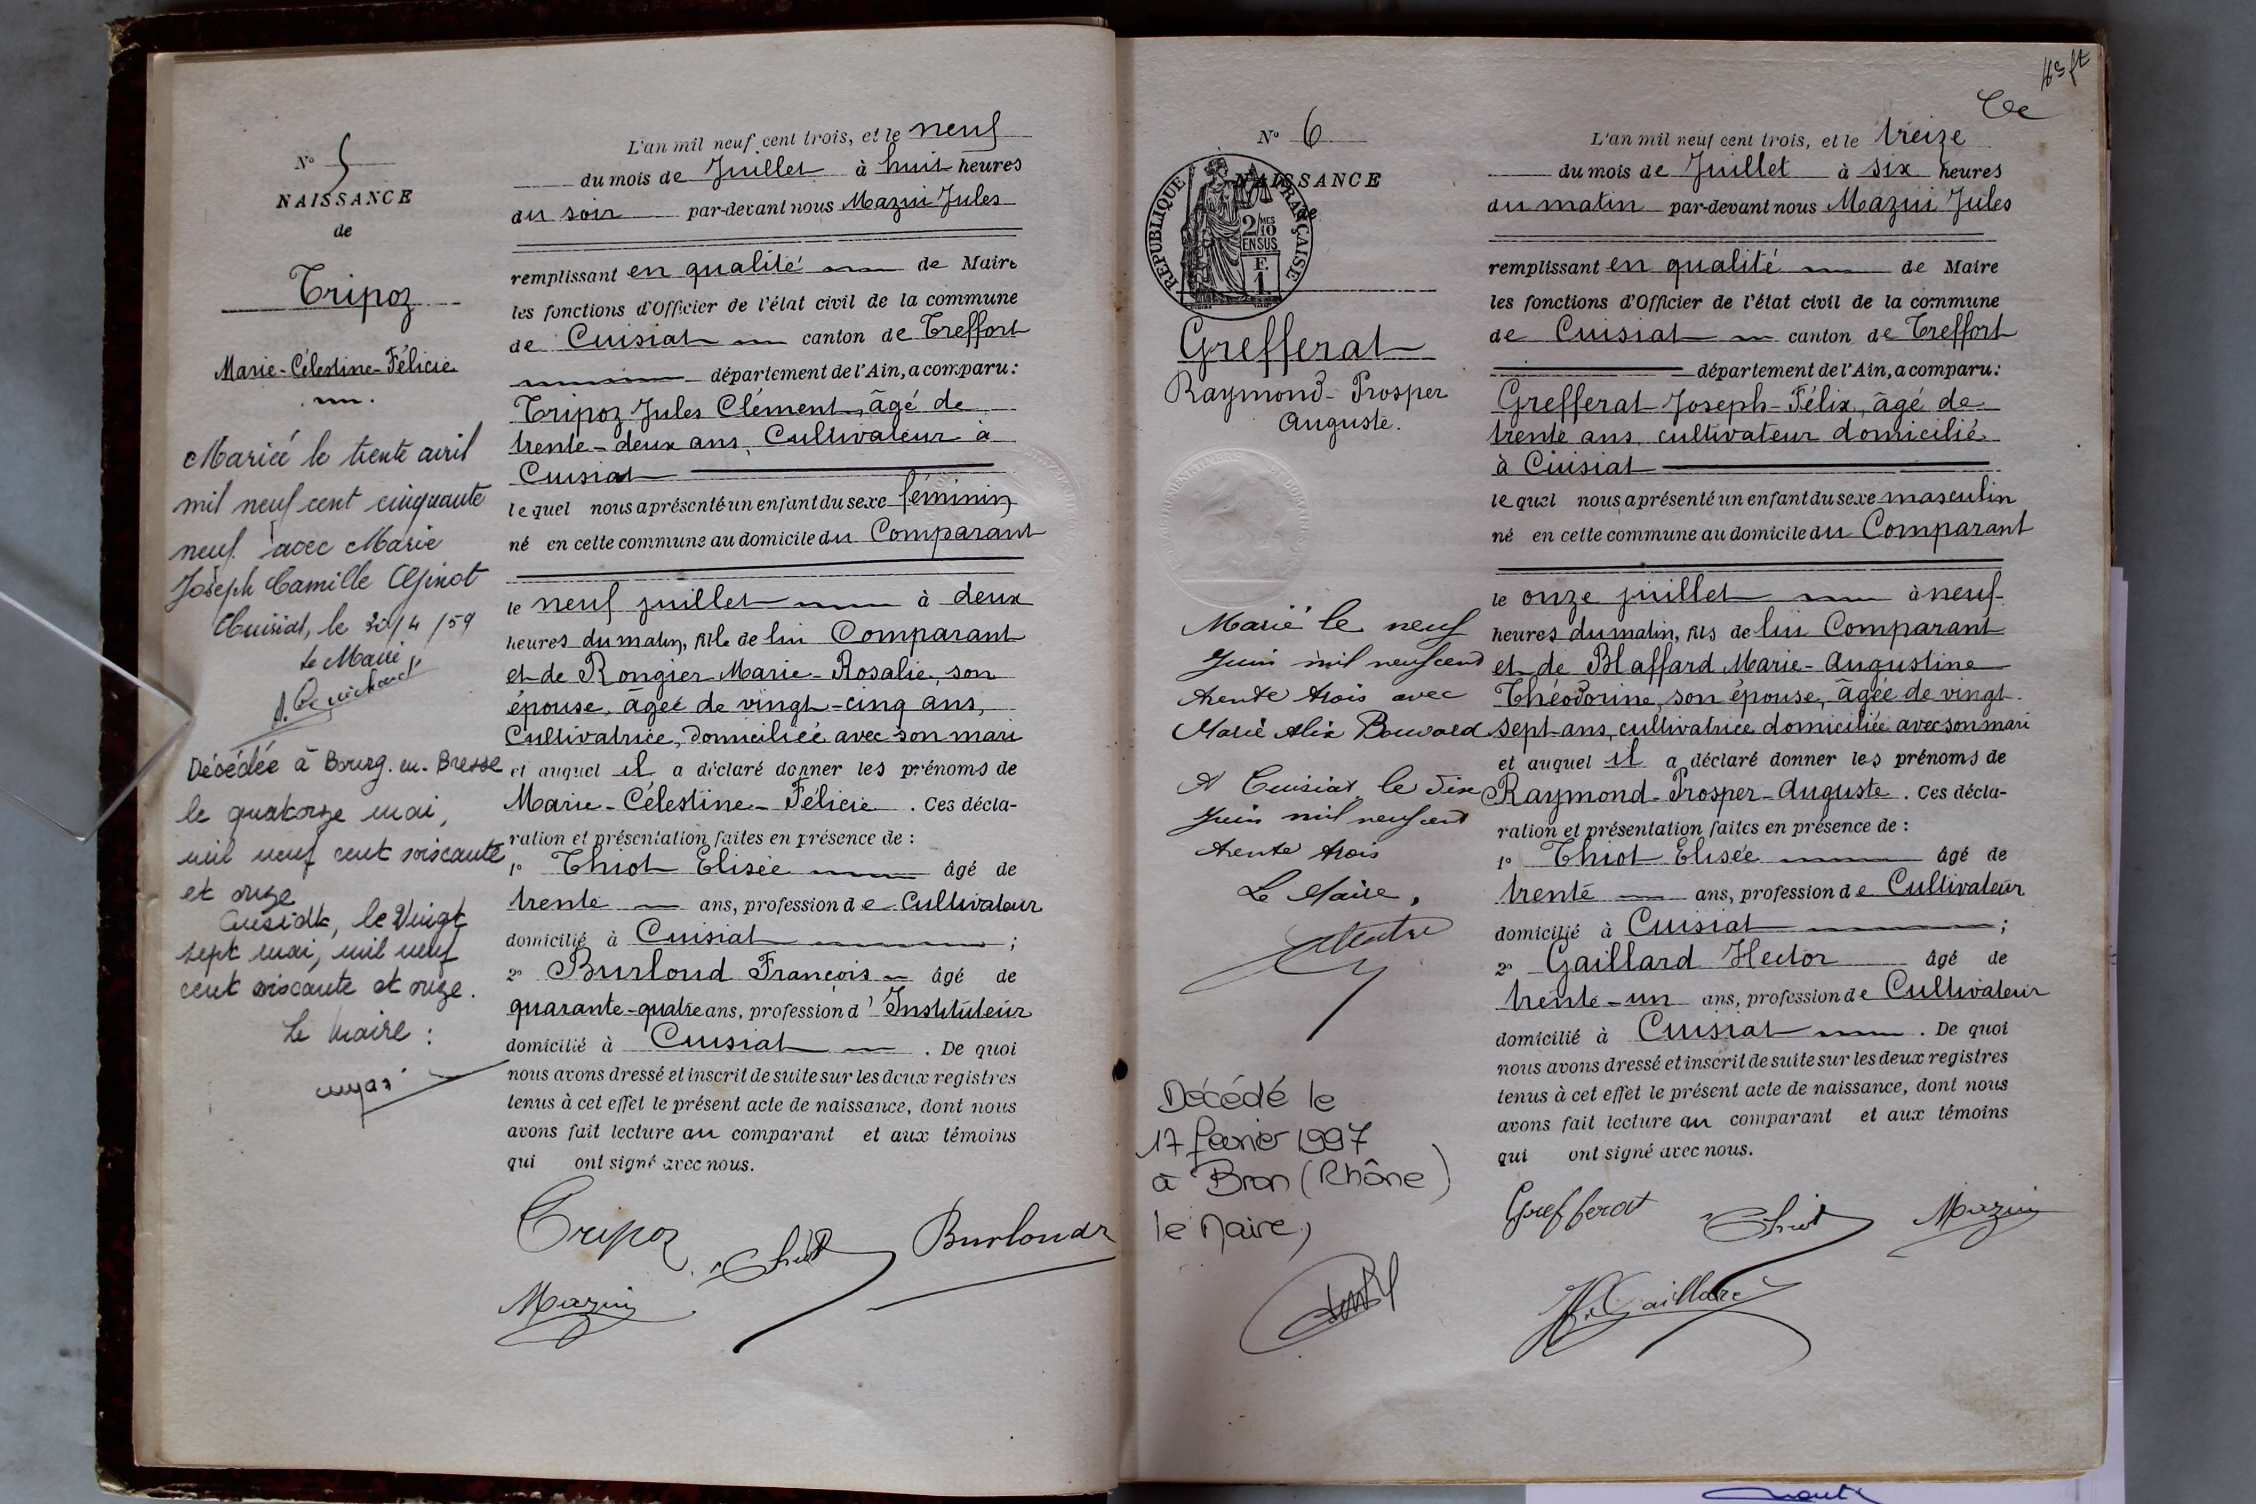 N° 5
NAISSANCE
de
Tripoz
Marie-Célestine-Félicie
Mariée le trente avril
mil neuf cent cinquante
neuf avec Marie
Joseph Camille
Cuisiat, le 30/4/59
le Maire
Décédée à Bourg-en-Bresse
le quatorze mai,
mil neuf cent soixante
et onze
Cuisiat, le Vingt
sept mai, mil neuf
cent soixante et onze.
Le Maire :
L'an mil neuf cent trois, et le neuf
du mois de Juillet à huit heures
du soir par-devant nous Mazui Jules
remplissant en qualité de Maire
les fonctions d'Officier de l'état civil de la commune
de Cuisiat canton de Treffort
département de l'Ain, a comparu :
Tripoz Jules Clément, âgé de
trente-deux ans, Cultivateur à
Cuisiat
lequel nous a présenté un enfant du sexe féminin
né en cette commune au domicile du Comparant
le neuf juillet à deux
heures du matin, fille de lui Comparant
et de Rongier Marie-Rosalie, son
épouse, âgée de vingt-cinq ans,
Cultivatrice, domiciliée avec son mari
et auquel il a déclaré donner les prénoms de
Marie-Célestine-Félicie. Ces décla-
ration et présentation faites en présence de :
1° Thiot Elisée âgé de
trente ans, profession de Cultivateur
domicilié à Cuisiat ;
2° Burloud François âgé de
quarante-quatre ans, profession d'Instituteur
domicilié à Cuisiat. De quoi
nous avons dressé et inscrit de suite sur les deux registres
tenus à cet effet le présent acte de naissance, dont nous
avons fait lecture au comparant et aux témoins
qui ont signé avec nous.
Tripoz Thiot Burloud
Mazui
N° 6
NAISSANCE
de
RÉPUBLIQUE FRANÇAISE
2/10
EN SUS
F.
1
Grefferat
Raymond-Prosper
Auguste.
Marié le neuf
Juin mil neuf cent
trente trois avec
Marie Alix Bouvard
A Cuisiat le dix
Juin mil neuf cent
trente trois
Le Maire,
Décédé le
17 février 1997
à Bron (Rhône)
le Maire,
L'an mil neuf cent trois, et le treize
du mois de Juillet à six heures
du matin par-devant nous Mazui Jules
remplissant en qualité de Maire
les fonctions d'Officier de l'état civil de la commune
de Cuisiat canton de Treffort
département de l'Ain, a comparu :
Grefferat Joseph-Félix, âgé de
trente ans, cultivateur domicilié
à Cuisiat
lequel nous a présenté un enfant du sexe masculin
né en cette commune au domicile du Comparant
le onze juillet à neuf
heures du matin, fils de lui Comparant
et de Blaffard Marie-Augustine
Théodorine, son épouse, âgée de vingt
sept ans, cultivatrice domiciliée avec son mari
et auquel il a déclaré donner les prénoms de
Raymond-Prosper-Auguste. Ces décla-
ration et présentation faites en présence de :
1° Thiot Elisée âgé de
trente ans, profession de Cultivateur
domicilié à Cuisiat ;
2° Gaillard Hector âgé de
trente-un ans, profession de Cultivateur
domicilié à Cuisiat. De quoi
nous avons dressé et inscrit de suite sur les deux registres
tenus à cet effet le présent acte de naissance, dont nous
avons fait lecture au comparant et aux témoins
qui ont signé avec nous.
Grefferat Thiot Mazui
H. Gaillard